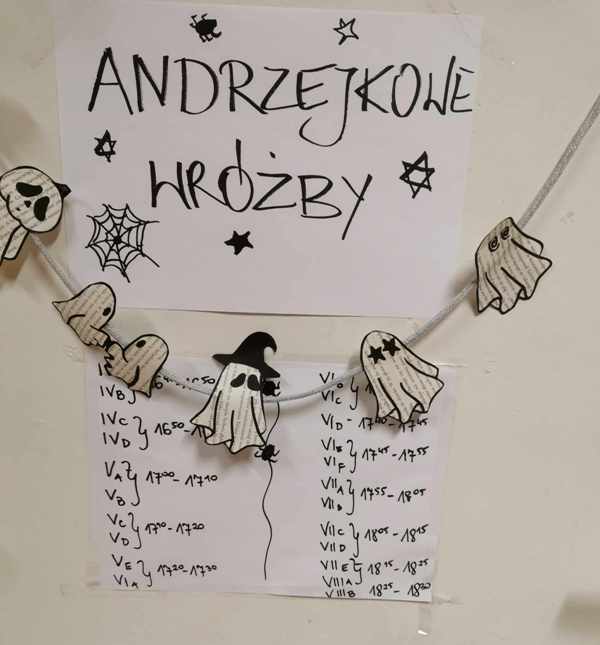 ANDRZEJKOWE
WRÓŻBY
IV B
IV C
IV D 16 50 -
V A 17 00 - 17 10
V B
V C 17 10 - 17 20
V D
V E 17 20 - 17 30
VI A
VI C
VI D - 17 40 - 17 45
VI E 17 45 - 17 55
VI F
VII A 17 55 - 18 05
VII B
VII C 18 05 - 18 15
VII D
VII E 18 15 - 18 25
VIII A
VIII B 18 25 - 18 30